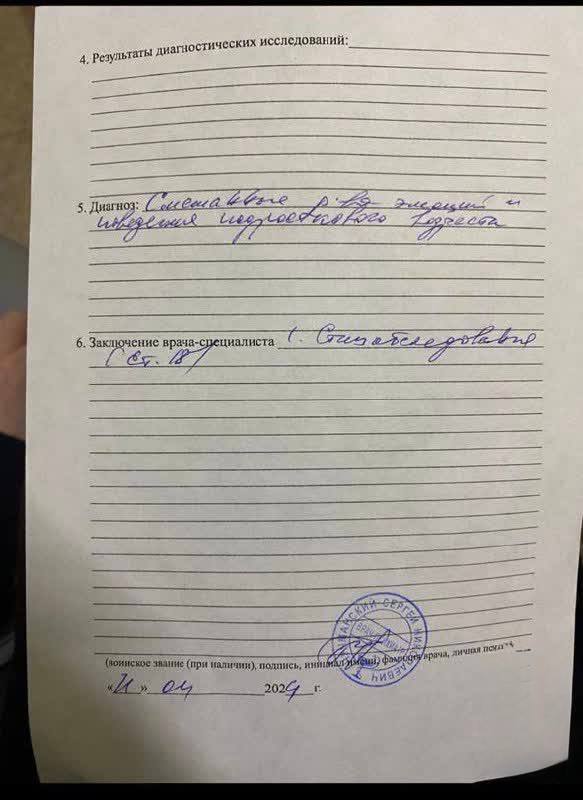 4. Результаты диагностических исследований:
5. Диагноз: Смешанные р-ва эмоций и
поведения подросткового возраста
6. Заключение врача-специалиста 1. Стац обследование
(ст. 18)
СЕРГЕЙ НИКОЛАЕВИЧ
ВРАЧ
(воинское звание (при наличии), подпись, инициал имени, фамилия врача, личная печать)
« » 04 2024 г.